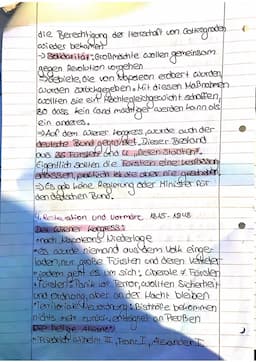 die Berechtigung der Herrschaft von Gottesgnaden
wieder bekamen
→ Solidarität: Großmächte wollen gemeinsam
gegen Revolution vorgehen
→ Gebiete, die von Napoleon erobert wurden,
wurden zurückgegeben. Mit diesen Maßnahmen
wollten sie ein Machtgleichgewicht schaffen,
so dass kein Land mächtiger werden kann als
ein anderes.
→ Auf dem Wiener Kongress, wurde auch der
deutsche Bund gegründet. Dieser Bestand
aus 35 Fürsten und 4 freien Städten.
Eigentlich sollten die Fürsten eine Verfassung
→ Es gab keine Regierung oder Minister für
den deutschen Bund.
4. Restauration und Vormärz 1815-1848
Der Wiener Kongress:
• nach Napoleons Niederlage
• es wurde niemand aus dem Volk einge-
laden, nur große Fürsten und deren
• jedem geht es um sich, Liberale & Fürsten
• Fürsten: Panik vor Terror, wollten Sicherheit
und Ordnung, aber an der Macht bleiben
• Biströße bekommen
nichts mehr zurück, an Preußen
Der heilige Allianz:
• Friedrich Wilhelm III, Franz I, Alexander I